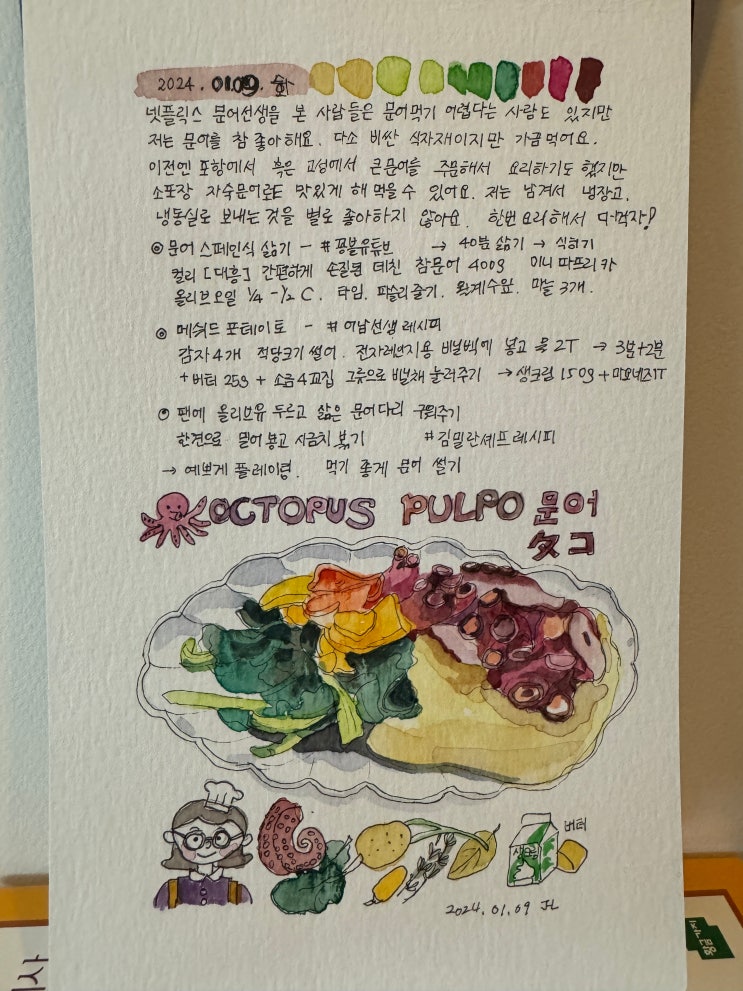 2024. 01.09. 화
넷플릭스 문어선생을 본 사람들은 문어먹기 어렵다는 사람도 있지만
저는 문어를 참 좋아해요. 다소 비싼 식자재이지만 가끔 먹어요.
이전엔 포항에서 혹은 고성에서 큰문어를 주문해서 요리하기도 했지만
소포장 자숙문어로도 맛있게 해 먹을 수 있어요. 저는 남겨서 냉장고,
냉동실로 보내는 것을 별로 좋아하지 않아요. 한번 요리해서 다먹자!
◎ 문어 스페인식 삶기 - #핑블유튜브 → 40분 삶기 → 식히기
컬리 [대흥] 간편하게 손질된 데친 참문어 400g 미니 파프리카
올리브오일 1/4 - 1/2 C. 타임. 파슬리 줄기. 월계수잎. 마늘 3개.
◎ 메쉬드 포테이토 - #이남선생 레시피
감자 4개 적당크기 썰어. 전자레인지용 비닐백에 넣고 물 2T → 3분+2분
+ 버터 25g + 소금 4꼬집 그릇으로 비닐채 눌러주기 → 생크림 150g + 마요네즈 1T
◎ 팬에 올리브유 두르고 삶은 문어다리 구워주기
한켠으로 밀어 놓고 시금치 볶기 #김밀란셰프 레시피
→ 예쁘게 플레이팅. 먹기 좋게 문어 썰기
OCTOPUS PULPO 문어
タコ
버터
생크림
2024.01.09 JL